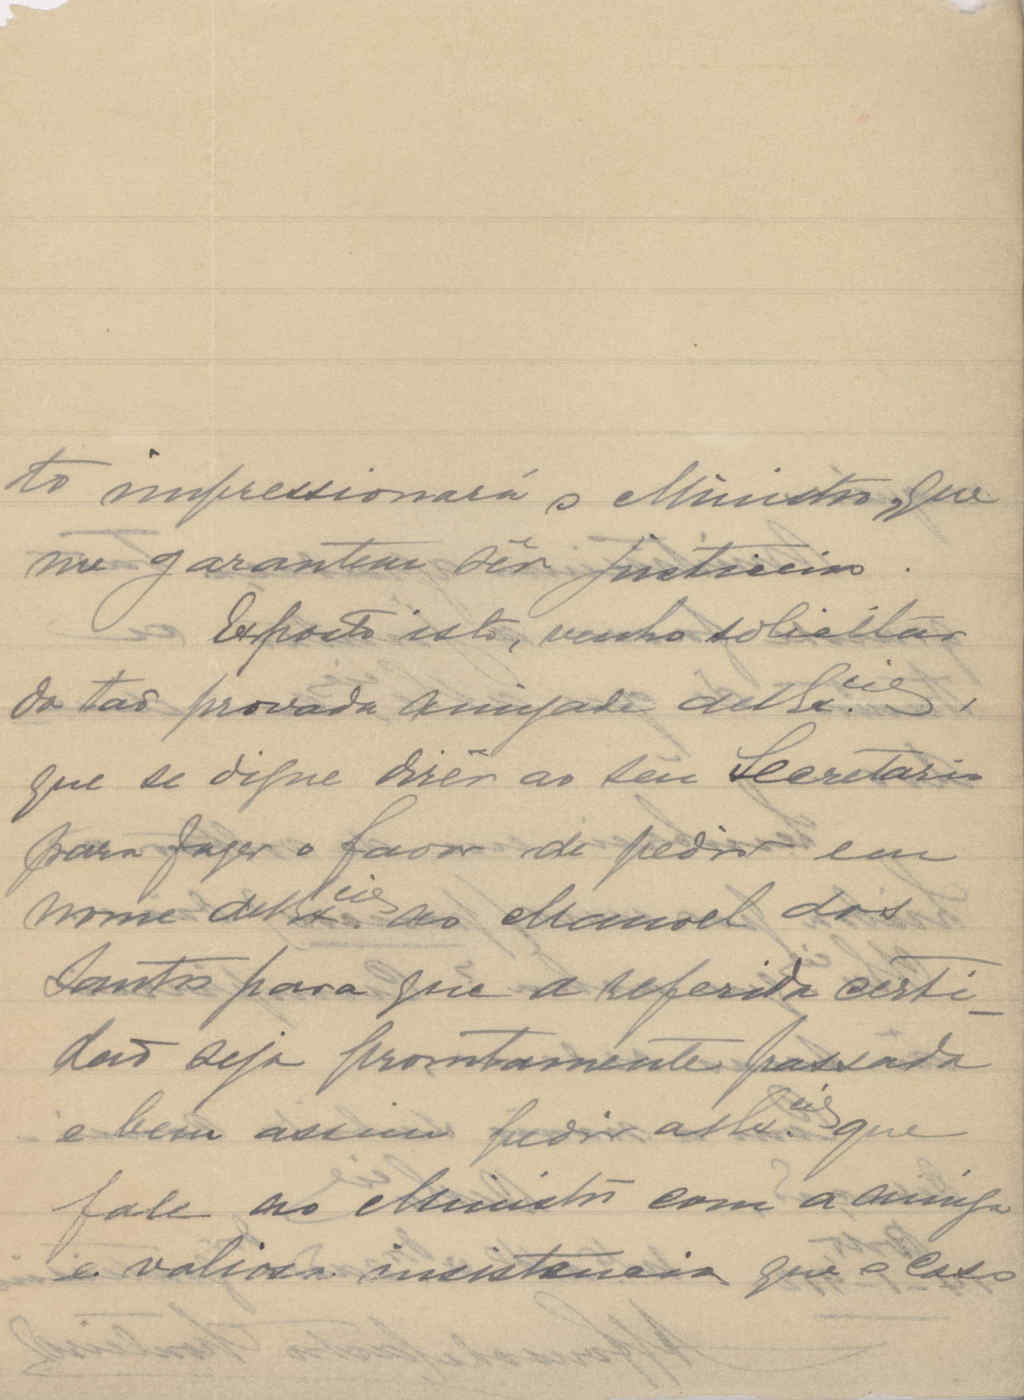 to impressionará o Ministro, que
me garantem sêr justiceiro.
Exposto isto, venho solicitar
da taõ provada amizade de V. Ex.cia,
que se digne dizêr ao seu Secretario
para fazer o favor de pedir em
nome de V. Ex.cia ao Manoel dos
Santos para que a referida certi-
daõ seja promtamente passada
e bem assim pedir a V. Ex.cia que
fale ao Ministro com a amiga
e valiosa insistencia que o caso